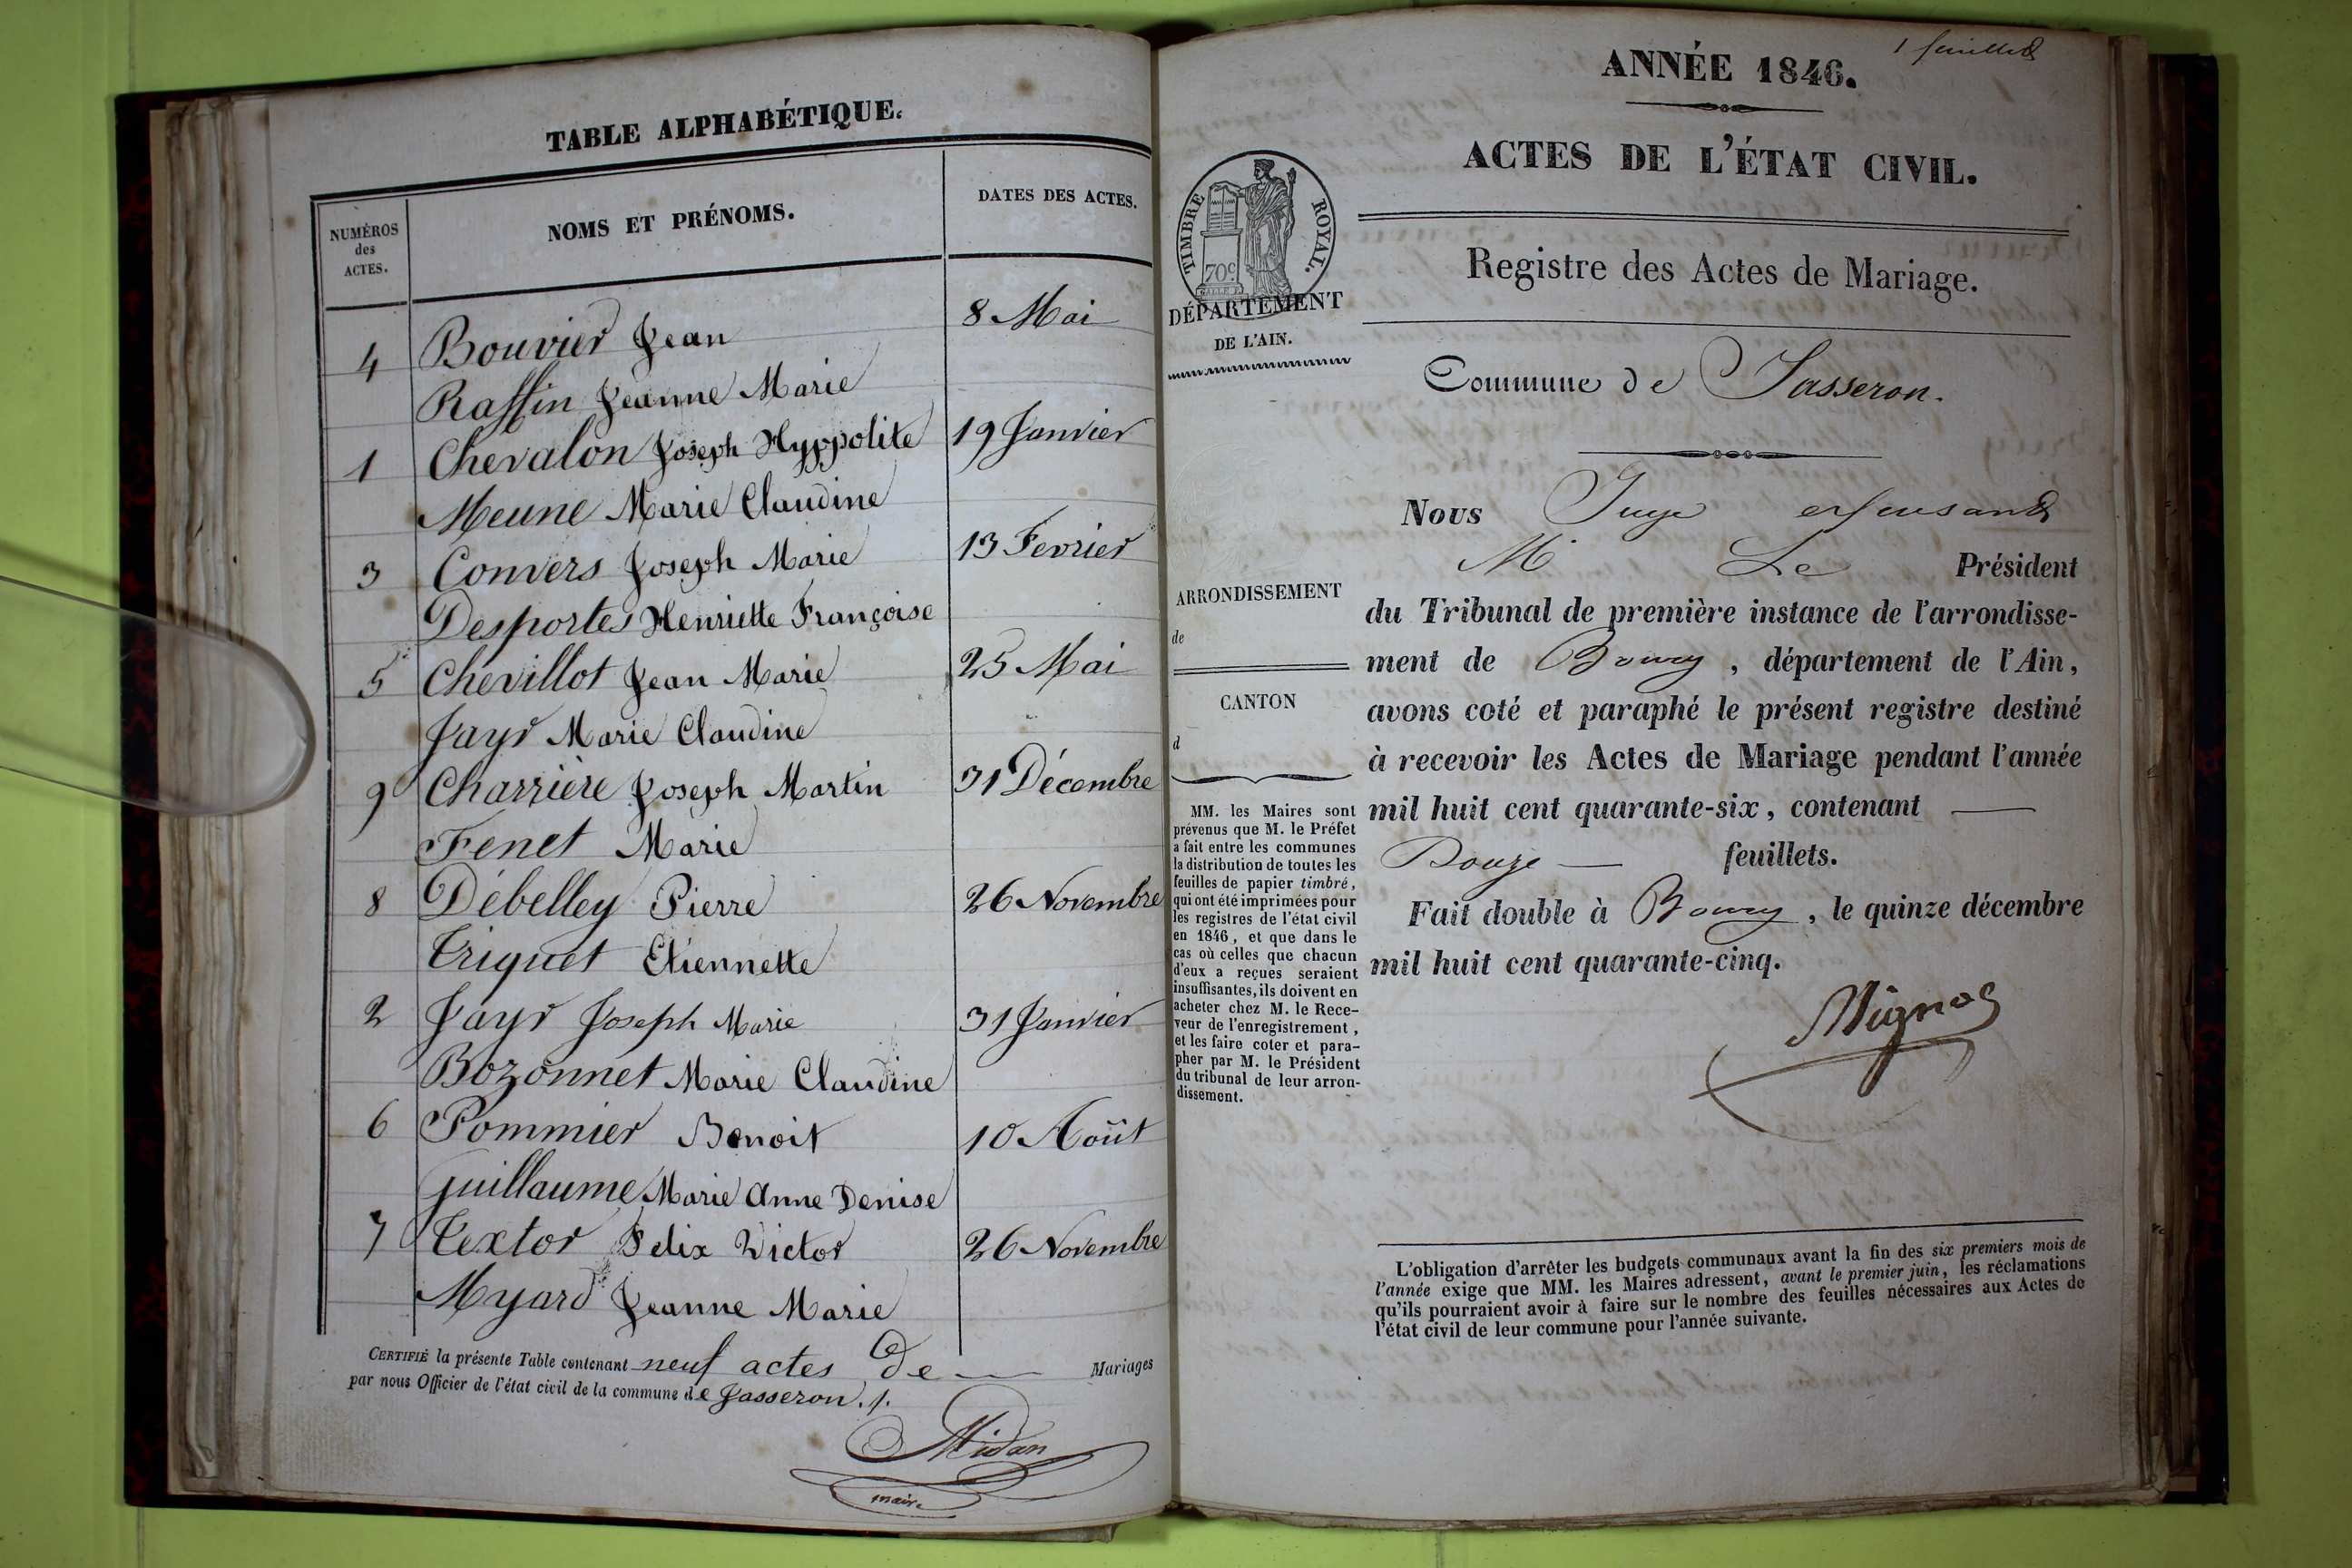 TABLE ALPHABÉTIQUE.
NUMÉROS
des
ACTES.
NOMS ET PRÉNOMS.
DATES DES ACTES.
4 Bouvier Jean 8 Mai
Raffin Jeanne Marie
1 Chevalon Joseph Hyppolite 19 Janvier
Meune Marie Claudine
3 Convers Joseph Marie 13 Fevrier
Desportes Henriette Françoise
5 Chevillot Jean Marie 25 Mai
Jayr Marie Claudine
9 Charrière Joseph Martin 31 Décembre
Fenet Marie
8 Débelley Pierre 26 Novembre
Triquet Etiennette
2 Jayr Joseph Marie 31 Janvier
Bozonnet Marie Claudine
6 Pommier Benoit 10 Août
Guillaume Marie Anne Denise
7 Textor Felix Victor 26 Novembre
Myard Jeanne Marie
CERTIFIÉ la présente Table contenant neuf actes de Mariages
par nous Officier de l'état civil de la commune de Jasseron ./.
Midan
maire
1 feuillet
ANNÉE 1846.
ACTES DE L'ÉTAT CIVIL.
TIMBRE ROYAL.
70c
DÉPARTEMENT
DE L'AIN.
Registre des Actes de Mariage.
Commune de Jasseron.
ARRONDISSEMENT
de
CANTON
d
MM. les Maires sont
prévenus que M. le Préfet
a fait entre les communes
la distribution de toutes les
feuilles de papier timbré,
qui ont été imprimées pour
les registres de l'état civil
en 1846, et que dans le
cas où celles que chacun
d'eux a reçues seraient
insuffisantes, ils doivent en
acheter chez M. le Rece-
veur de l'enregistrement,
et les faire coter et para-
pher par M. le Président
du tribunal de leur arron-
dissement.
Nous Juge
M. Le Président
du Tribunal de première instance de l'arrondisse-
ment de Bourg, département de l'Ain,
avons coté et paraphé le présent registre destiné
à recevoir les Actes de Mariage pendant l'année
mil huit cent quarante-six, contenant
Douze feuillets.
Fait double à Bourg, le quinze décembre
mil huit cent quarante-cinq.
L'obligation d'arrêter les budgets communaux avant la fin des six premiers mois de
l'année exige que MM. les Maires adressent, avant le premier juin, les réclamations
qu'ils pourraient avoir à faire sur le nombre des feuilles nécessaires aux Actes de
l'état civil de leur commune pour l'année suivante.